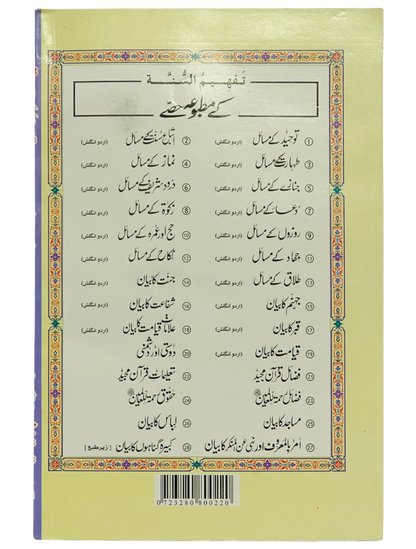 تَفہِیمُ السُّنَّة
کے مطبوعہ حصے
① توحید کے مسائل (اردو انگلش) ② اتباع سنت کے مسائل (اردو انگلش)
③ طہارت کے مسائل (اردو انگلش) ④ نماز کے مسائل (اردو انگلش)
⑤ جنازے کے مسائل (اردو انگلش) ⑥ درود شریف کے مسائل (اردو انگلش)
⑦ دعا کے مسائل (اردو انگلش) ⑧ زکوٰۃ کے مسائل (اردو انگلش)
⑨ روزوں کے مسائل (اردو انگلش) ⑩ حج اور عمرہ کے مسائل (اردو انگلش)
⑪ جہاد کے مسائل (اردو انگلش) ⑫ نکاح کے مسائل (اردو انگلش)
⑬ طلاق کے مسائل (اردو انگلش) ⑭ جنت کا بیان (اردو انگلش)
⑮ جہنم کا بیان (اردو انگلش) ⑯ شفاعت کا بیان (اردو انگلش)
⑰ قبر کا بیان (اردو انگلش) ⑱ علامات قیامت کا بیان (اردو انگلش)
⑲ قیامت کا بیان (اردو انگلش) ⑳ دوستی اور دشمنی
㉑ فضائل قرآن مجید ㉒ تعلیمات قرآن مجید
㉓ فضائل رحمۃ للعالمین ﷺ ㉔ حقوق رحمۃ للعالمین ﷺ
㉕ مساجد کا بیان ㉖ لباس کا بیان
㉗ امر بالمعروف اور نہی عن المنکر کا بیان ㉘ کبیرہ گناہوں کا بیان [زیر طبع]
0723280800220